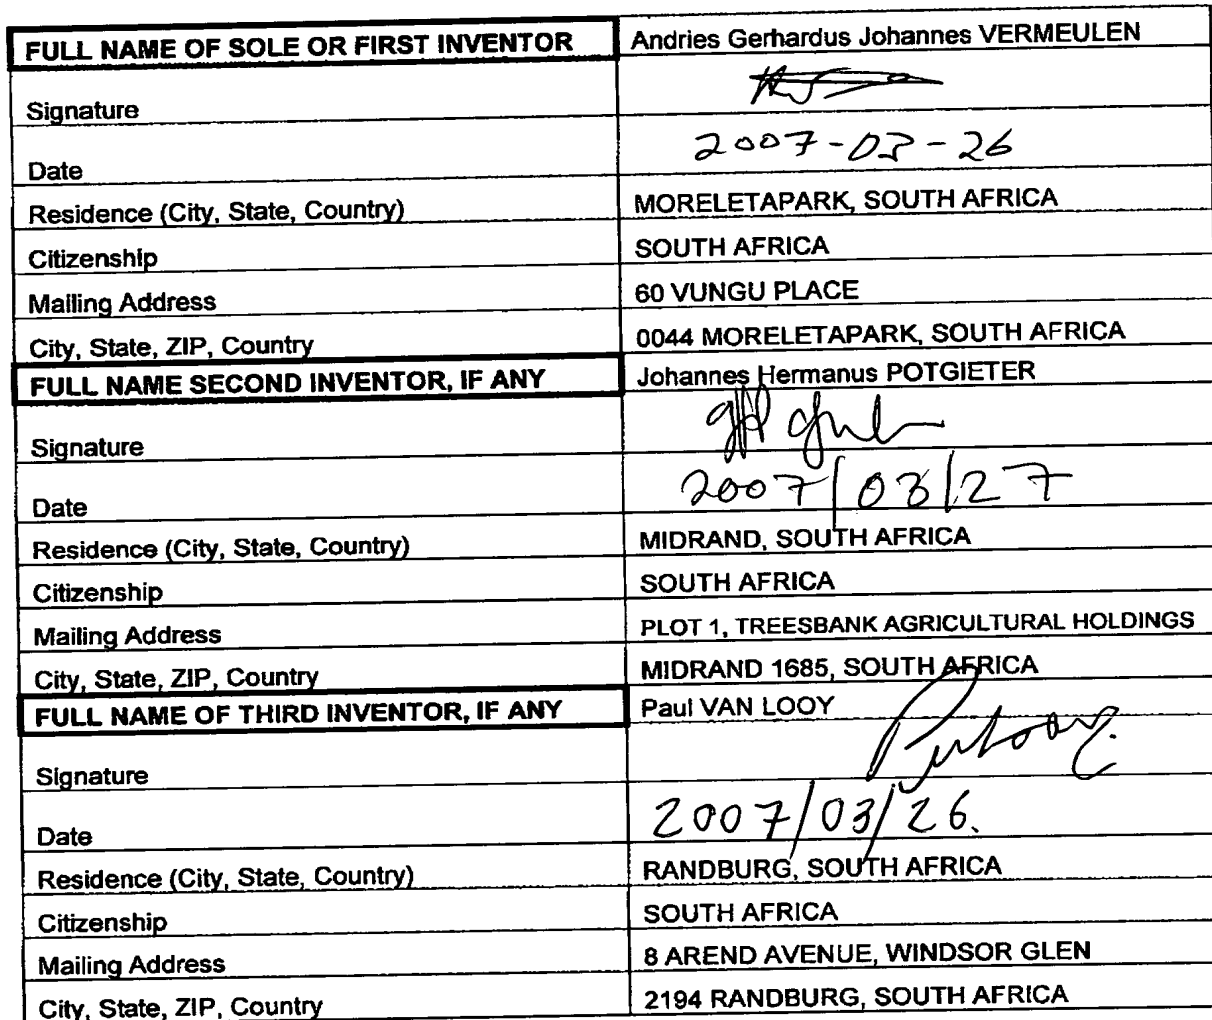 FULL NAME OF SOLE OR FIRST INVENTOR Andries Gerhardus Johannes VERMEULEN
Signature
Date 2007-03-26
Residence (City, State, Country) MORELETAPARK, SOUTH AFRICA
Citizenship SOUTH AFRICA
Mailing Address 60 VUNGU PLACE
City, State, ZIP, Country 0044 MORELETAPARK, SOUTH AFRICA
FULL NAME SECOND INVENTOR, IF ANY Johannes Hermanus POTGIETER
Signature
Date 2007/03/27
Residence (City, State, Country) MIDRAND, SOUTH AFRICA
Citizenship SOUTH AFRICA
Mailing Address PLOT 1, TREESBANK AGRICULTURAL HOLDINGS
City, State, ZIP, Country MIDRAND 1685, SOUTH AFRICA
FULL NAME OF THIRD INVENTOR, IF ANY Paul VAN LOOY
Signature
Date 2007/03/26.
Residence (City, State, Country) RANDBURG, SOUTH AFRICA
Citizenship SOUTH AFRICA
Mailing Address 8 AREND AVENUE, WINDSOR GLEN
City, State, ZIP, Country 2194 RANDBURG, SOUTH AFRICA